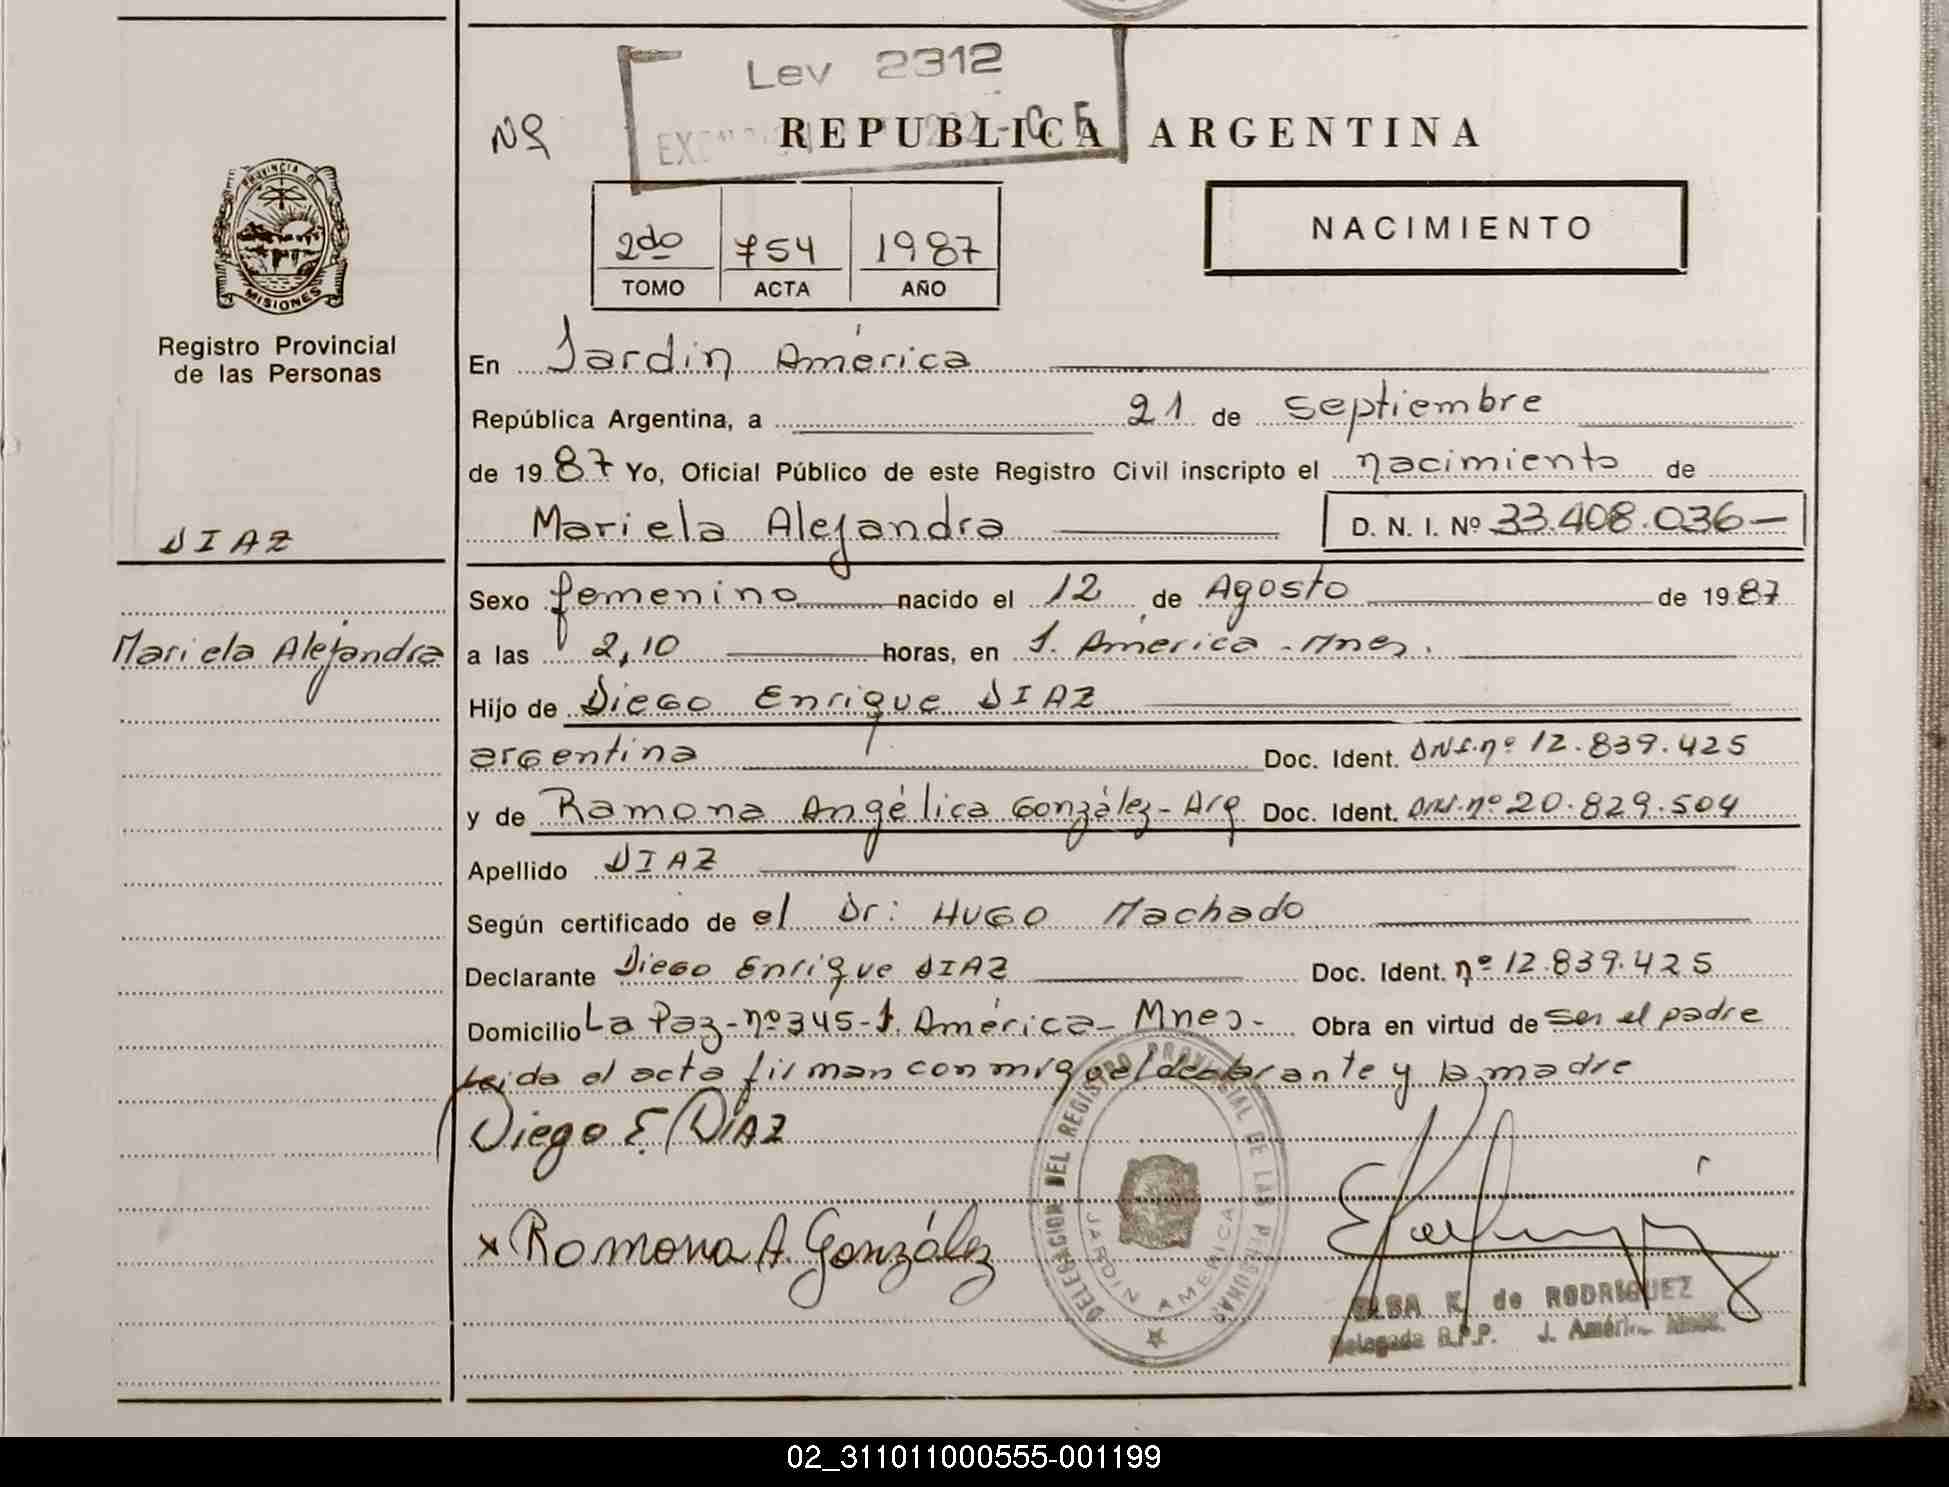 Ley 2312
Nº REPUBLICA ARGENTINA
PROVINCIA DE
MISIONES
Registro Provincial
de las Personas
2do 754 1987
TOMO ACTA AÑO
NACIMIENTO
En Jardín América
República Argentina, a 21 de septiembre
de 1987 Yo, Oficial Público de este Registro Civil inscripto el nacimiento de
DIAZ
Mariela Alejandra D. N. I. Nº 33.408.036—
Sexo femenino nacido el 12 de Agosto de 1987
Mariela Alejandra
a las 2,10 horas, en J. América - Mnes.
Hijo de Diego Enrique DIAZ
argentina Doc. Ident. DNI. nº 12.839.425
y de Ramona Angélica González - Arg Doc. Ident. DNI. nº 20.829.504
Apellido DIAZ
Según certificado de el Dr: HUGO Machado
Declarante Diego Enrique DIAZ Doc. Ident. nº 12.839.425
Domicilio La Paz - nº 345 - J. América - Mnes - Obra en virtud de ser el padre
Leida el acta firman conmigo el declarante y la madre
Diego E. DIAZ
x Ramona A. González
DELEGACION DEL REGISTRO PROVINCIAL DE LAS PERSONAS
JARDIN AMERICA
ELSA K. de RODRIGUEZ
Delegada R.P.P. J. América Mnes.
02_311011000555-001199